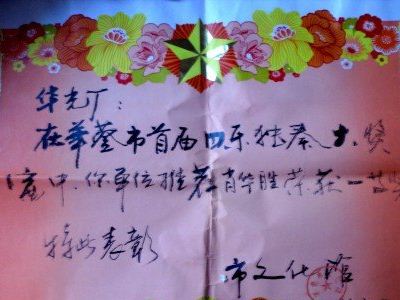 华光厂：
在華蓥市首届乐独奏大奖
赛中，你单位推荐肖华胜荣获一等奖
特此表彰
市文化馆